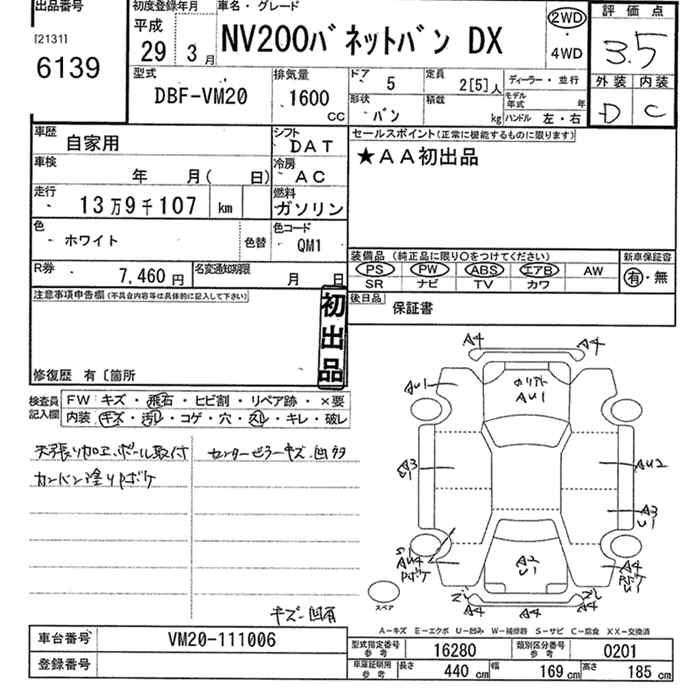 出品番号
[2131]
6139
初度登録年月
平成
29 3 月
車名・グレード
NV200バネットバン DX
2WD
・
4WD
評価点
3.5
外装 内装
D C
型式
DBF-VM20
排気量
1600
CC
ドア 5
定員 2[5]人
ディーラー・並行
形状 バン
積載 kg
モデル年式 年
ハンドル 左・右
車歴 自家用
シフト DAT
車検 年 月( 日)
冷房 AC
走行 13万9千107 km
燃料 ガソリン
色 ホワイト
色替
色コード QM1
R券 7,460円
名変通知期限 月 日
セールスポイント(正常に機能するものに限ります)
★AA初出品
装備品 (純正品に限り○をつけてください)
PS PW ABS エアB AW
SR ナビ TV カワ
新車保証書
有・無
後日品 保証書
注意事項申告欄(不具合内容等は具体的に記入して下さい)
初出品
修復歴 有 〔箇所
検査員記入欄
FW キズ・飛石・ヒビ割・リペア跡・×要
内装 キズ・汚レ・コゲ・穴・スレ・キレ・破レ
天張り加工.ポール取付
カンバン塗りPボケ
センターピラーキズ.凹多
キズ・凹有
A4 A4
AU1
AU1
A3
1
AU2
A3
U1
S1
AU4
Pボケ
A2
U1
A4
Pボケ
U1
ズレ ズレ
A4 A4
スペア
A-キズ E-エクボ U-凹み W-補修跡 S-サビ C-腐食 XX-交換済
車台番号 VM20-111006
登録番号
型式指定番号 参考 16280
類別区分番号 参考 0201
車庫証明用 参考
長さ 440 cm
幅 169 cm
高さ 185 cm